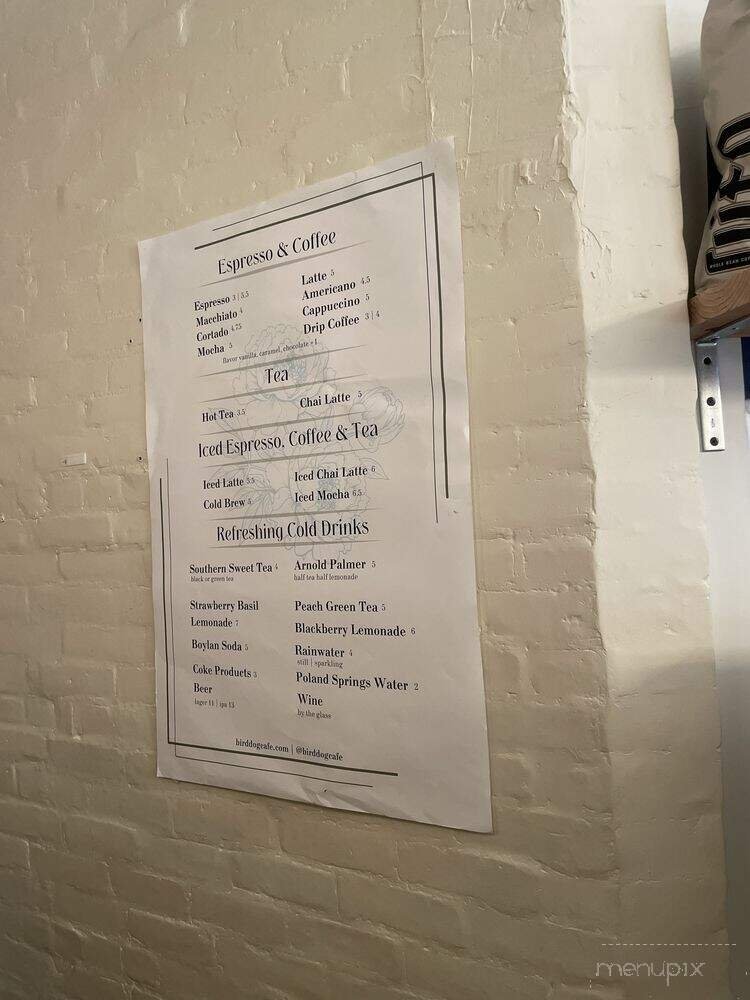 Espresso & Coffee
Espresso 3 | 3.5
Macchiato 4
Cortado 4.75
Mocha 5
Latte 5
Americano 4.5
Cappuccino 5
Drip Coffee 3 | 4
flavor vanilla, caramel, chocolate +1
Tea
Hot Tea 3.5
Chai Latte 5
Iced Espresso, Coffee & Tea
Iced Latte 5.5
Cold Brew 5
Iced Chai Latte 6
Iced Mocha 6.5
Refreshing Cold Drinks
Southern Sweet Tea 4
black or green tea
Arnold Palmer 5
half tea half lemonade
Strawberry Basil
Lemonade 7
Peach Green Tea 5
Blackberry Lemonade 6
Boylan Soda 5
Rainwater 4
still | sparkling
Coke Products 3
Poland Springs Water 2
Beer
lager 11 | ipa 13
Wine
by the glass
birddogcafe.com | @birddogcafe
WHOLE BEAN
menupix